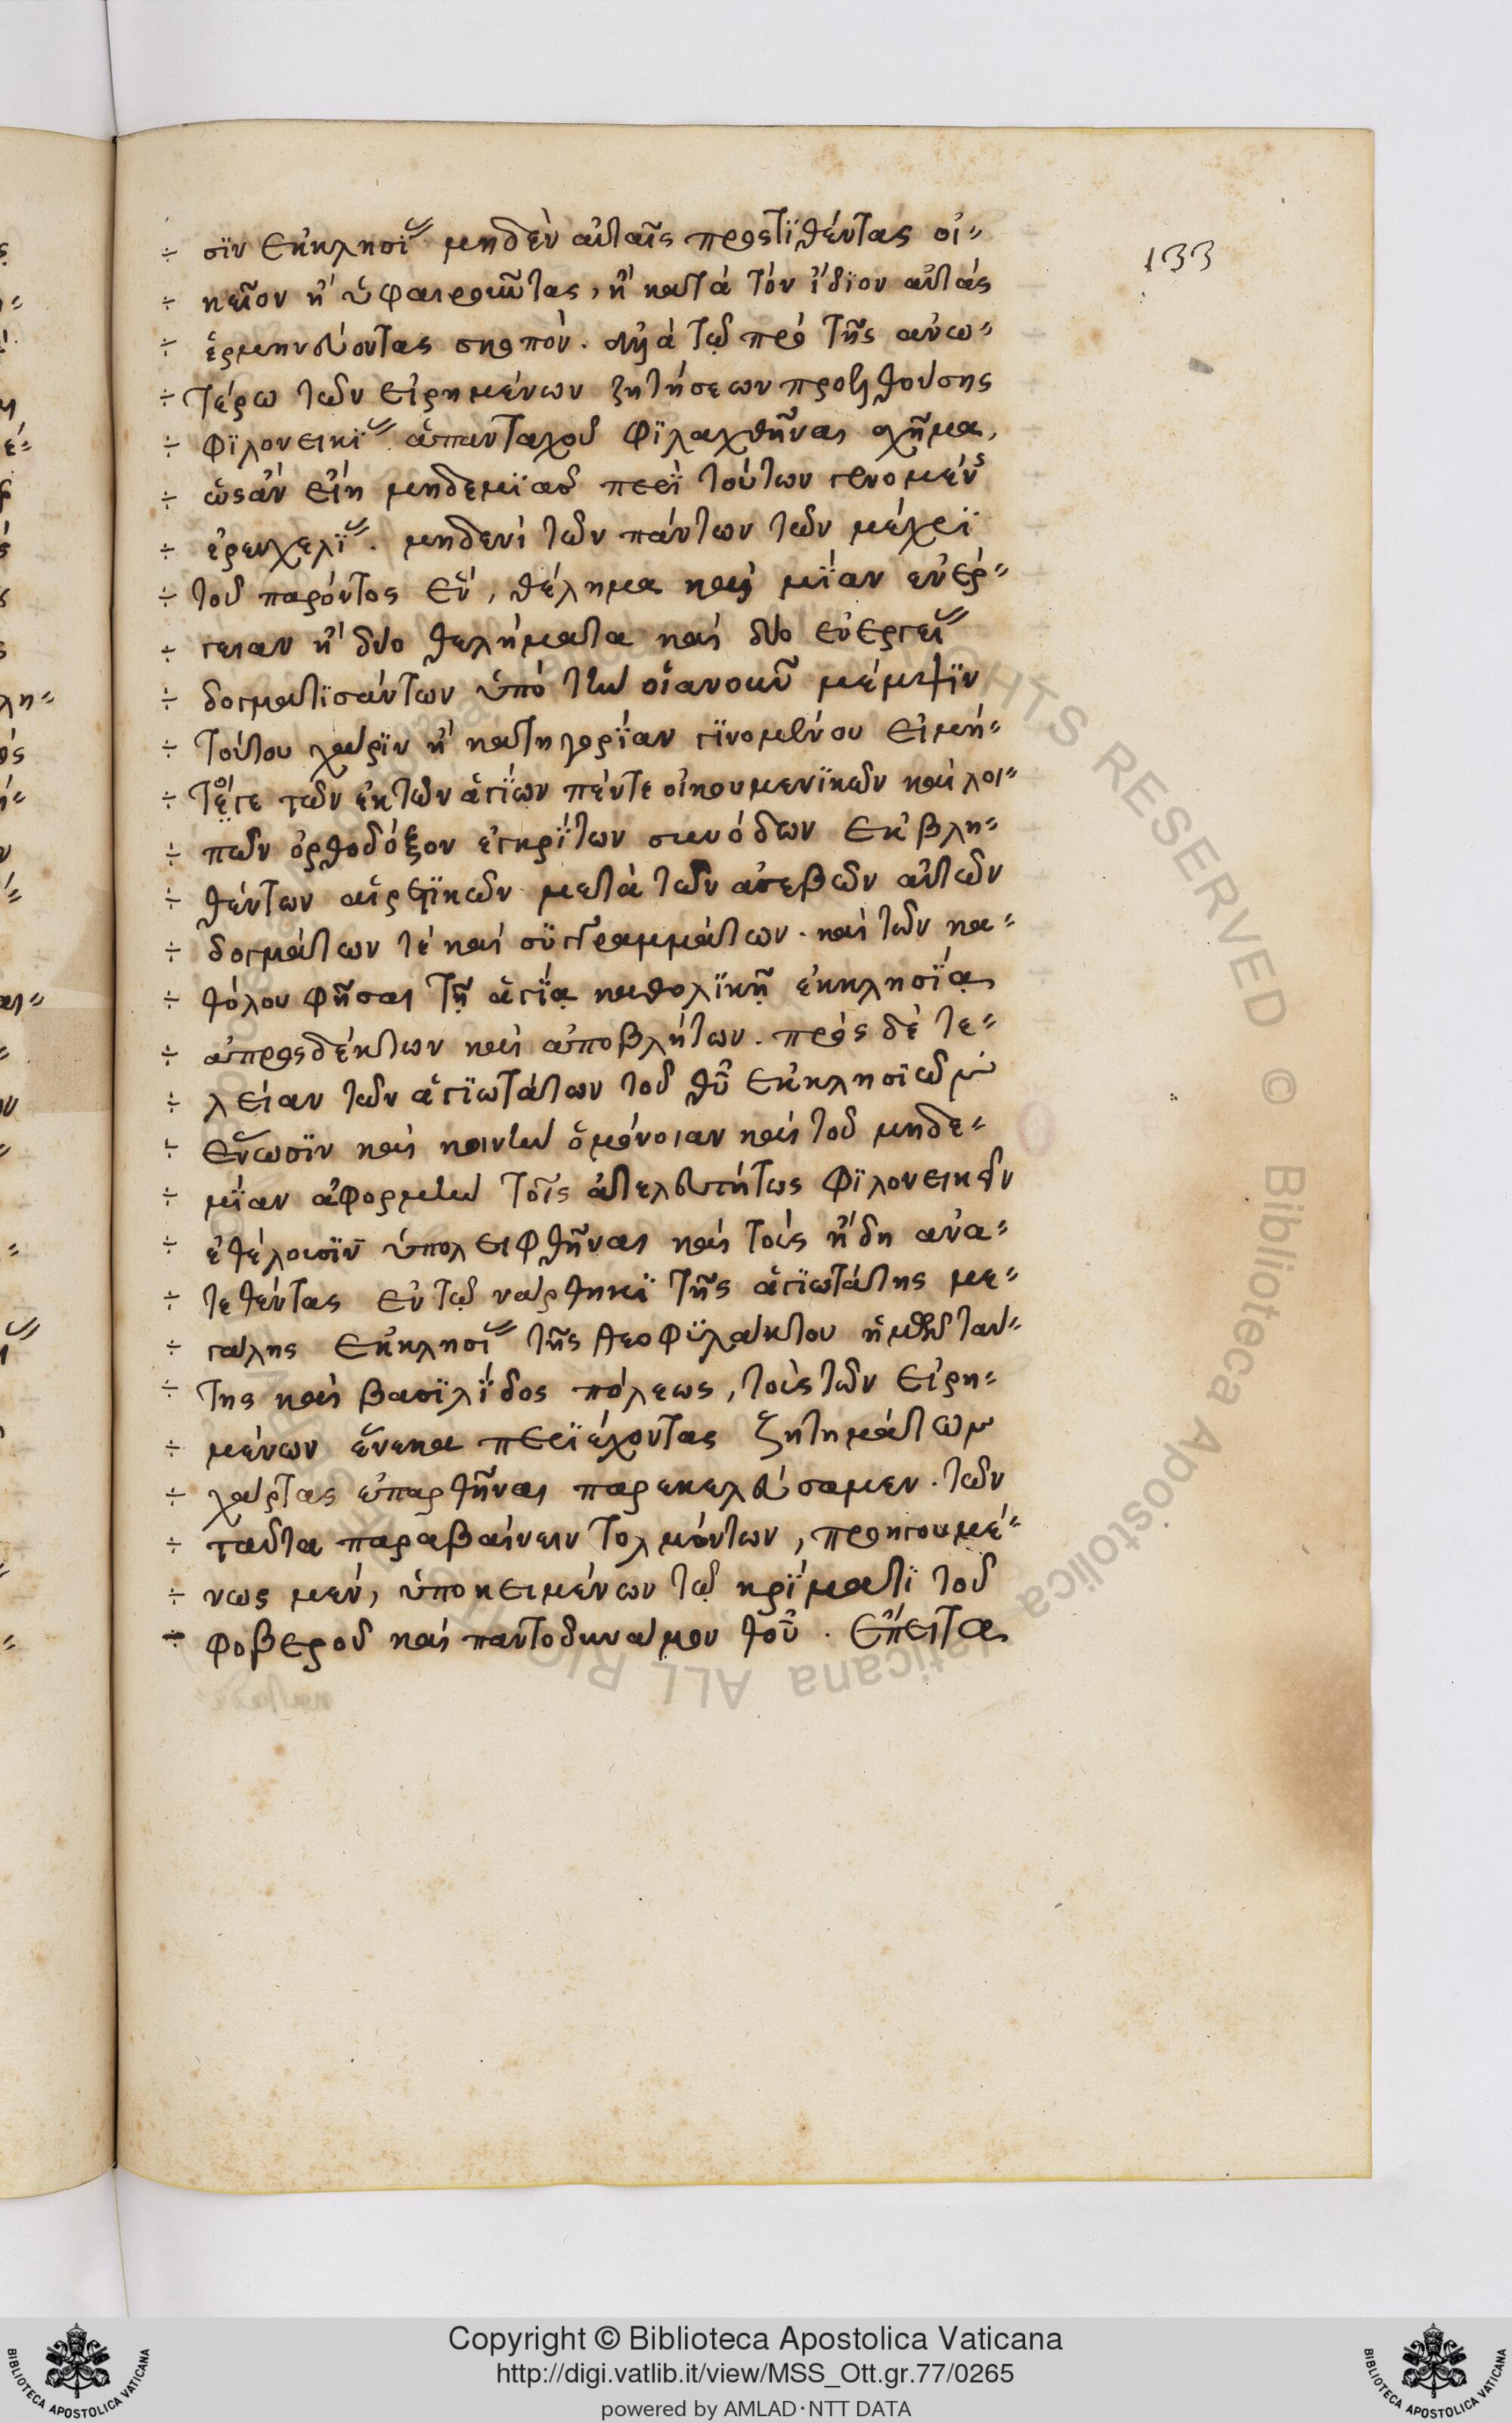 133
σϊν ἐκκλησϊῶν μηδὲν αὐταῖς προςτϊθέντας οἰ-
κεῖον ἢ ὑφαιροῦντας, ἢ κατὰ τὸν ἴδϊον αὐτὰς
ἑρμηνεύοντας σκοπόν. ἀλλὰ τῷ πρὸ τῆς ἀνω-
τέρω τῶν εἰρημένων ζητήσεων προελθούσης
φϊλονεικϊας ἁπανταχοῦ φϊλαχθῆναι σχῆμα,
ὡς ἂν εἴη μηδεμϊᾶς περὶ τούτων γενομένης
ἐρεσχελϊας. μηδενὶ τῶν πάντων τῶν μέχρϊ
τοῦ παρόντος ἓν, θέλημα καὶ μϊαν ἐνέρ-
γειαν ἢ δύο θελήματα καὶ δύο ἐνεργείας
δογματϊσάντων ὑπὸ τὴν οἱανοῦν μέμψϊν
τούτου χάρϊν ἢ κατηγορϊαν γϊνομένου εἰ μή-
τοί γε τῶν ἐκ τῶν ἁγϊων πέντε οἰκουμενϊκῶν καὶ λοι-
πῶν ὀρθοδόξον ἐγκρϊτων συνόδων ἐκβλη-
θέντων αἱρετϊκῶν μετὰ τῶν ἀσεβῶν αὐτῶν
δογμάτων τὲ καὶ σϋγγραμμάτων. καὶ τῶν κα-
θόλου φῆσαι τῇ ἁγϊᾳ καθολϊκῇ ἐκκλησϊᾳ
ἀπροςδέκτων καὶ ἀποβλήτων. πρὸς δὲ τε-
λείαν τῶν ἁγϊωτάτων τοῦ θῦ ἐκκλησϊῶν
ἕνωσϊν καὶ κοινὴν ὁμόνοιαν καὶ τοῦ μηδε-
μϊαν ἀφορμὴν τοῖς ἀτελευτήτως φϊλονεικεῖν
ἐθέλουσϊν ὑπολειφθῆναι καὶ τοὺς ἤδη ἀνα-
τεθέντας ἐν τῷ νάρθηκϊ τῆς ἁγϊωτάτης με-
γάλης ἐκκλησϊας τῆς θεοφϋλάκτου ἡμῶν ταύ-
της καὶ βασϊλϊδος πόλεως, τοὺς τῶν εἰρη-
μένων ἕνεκα περϊέχοντας ζητημάτων
χάρτας ἐπαρθῆναι παρεκελεύσαμεν. τῶν
ταῦτα παραβαίνειν τολμόντων, προηγουμέ-
νως μὲν, ὑποκειμένων τῷ κρϊματϊ τοῦ
φοβεροῦ καὶ παντοδυνάμου θοῦ. ἔπειτα
Copyright © Biblioteca Apostolica Vaticana
http://digi.vatlib.it/view/MSS_Ott.gr.77/0265
powered by AMLAD·NTT DATA